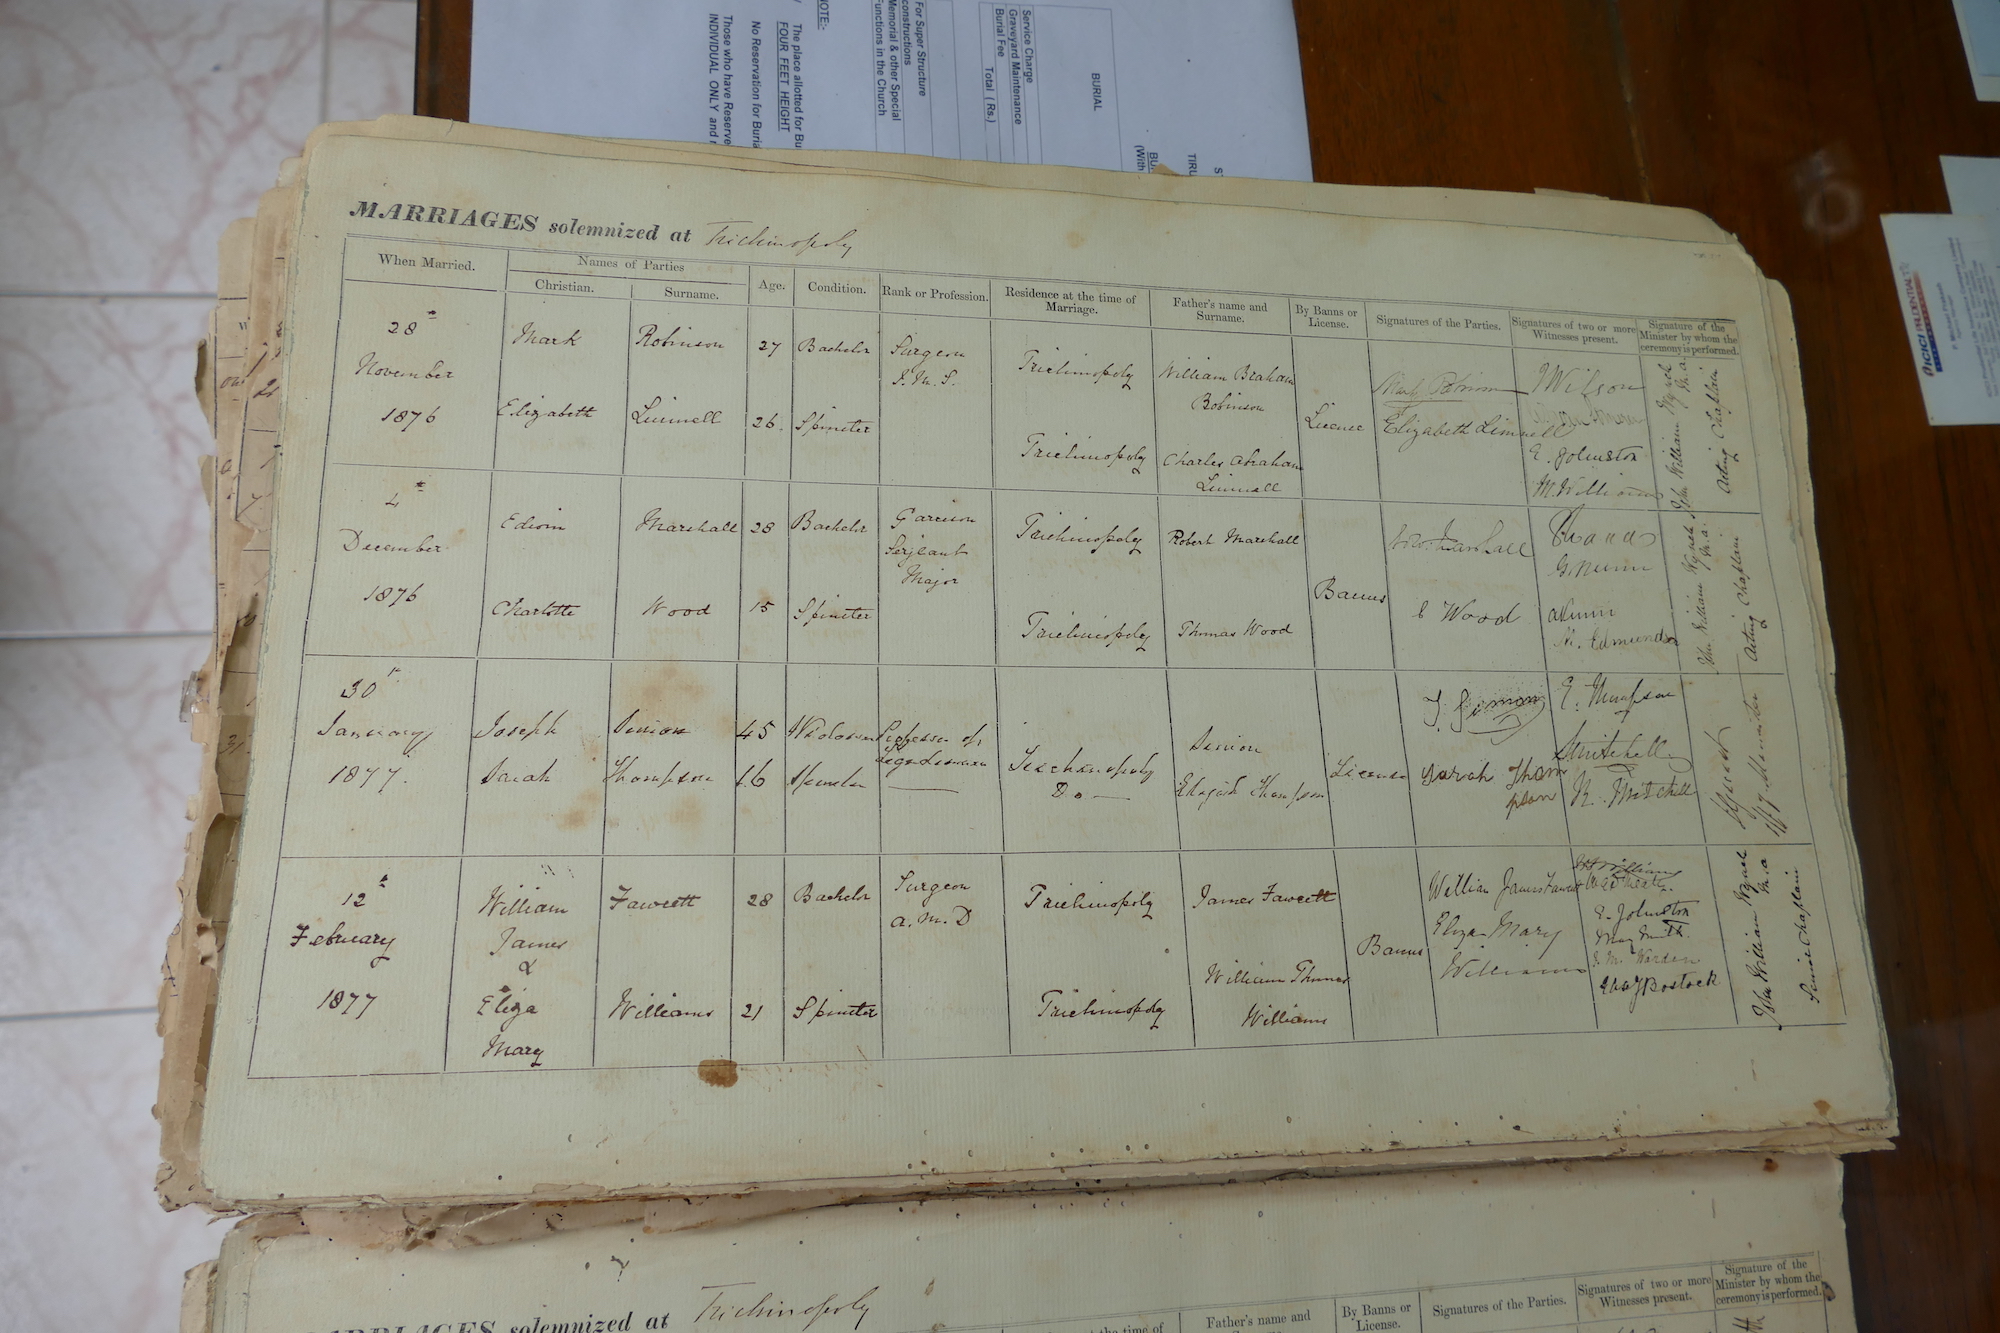 NOTE:-
The place allotted for Bu
FOUR FEET HEIGHT
No Reservation for Buria
Those who have Reserve
INDIVIDUAL ONLY and
For Super Structure
constructions
Memorial & other Special
Functions in the Church
Service Charge
Graveyard Maintenance
Burial Fee
Total ( Rs.)
BURIAL
TIRU
(With
ICICI PRUDENTIAL
MARRIAGES solemnized at Trichinopoly
When Married.
Names of Parties
Christian.
Surname.
Age.
Condition.
Rank or Profession.
Residence at the time of
Marriage.
Father's name and
Surname.
By Banns or
License.
Signatures of the Parties.
Signatures of two or more
Witnesses present.
Signature of the
Minister by whom the
ceremony is performed.
28th
November
1876
Mark
Robinson
27
Bachelor
Surgeon
I. M. S.
Trichinopoly
William Braham
Robinson
Elizabeth
Linnell
26.
Spinster
Trichinopoly
Charles Abraham
Linnell
License
Mark Robinson
Elizabeth Linnell
Wilson
E. Johnston
M. Williams
John William Wynch
M.A.
Acting Chaplain
4th
December
1876
Edwin
Marshall
28
Bachelor
Garrison
Serjeant
Major
Trichinopoly
Robert Marshall
Charlotte
Wood
15
Spinster
Trichinopoly
Thomas Wood
Banns
Marshall
C Wood
G Nunn
A Nunn
M. Edmunds
John William Wynch
M.A.
Acting Chaplain
30
January
1877.
Joseph
Simion
45
Widower
Professor of
Trichinopoly
Simion
Sarah
Thompson
16
Spinster
Do
Thompson
License
J. Simion
Sarah Thom
pson
E. Thompson
S Mitchell
R. Mitchell
12th
February
1877
William
James
&
Eliza
Mary
Fawcett
Williams
28
21
Bachelor
Spinster
Surgeon
A. M. D
Trichinopoly
Trichinopoly
James Fawcett
William Thomas
Williams
Banns
William James Fawcett
Eliza Mary
Williams
E. Johnston
May Smith.
J. M. Warden
Bostock
John William Wynch
M.A
Senior Chaplain
MARRIAGES solemnized at Trichinopoly
the time of
Father's name and
By Banns or
License.
Signatures of the Parties.
Signatures of two or more
Witnesses present.
Signature of the
Minister by whom the
ceremony is performed.